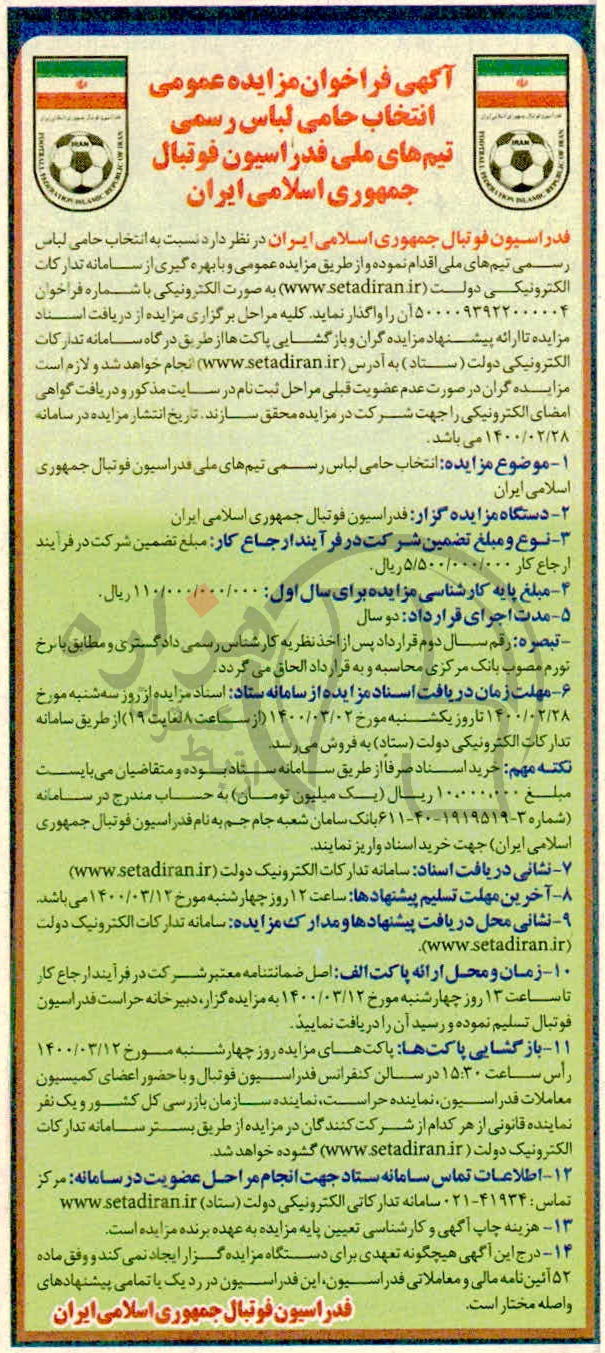 آگهی فراخوان مزایده عمومی
انتخاب حامی لباس رسمی
تیم‌های ملی فدراسیون فوتبال
جمهوری اسلامی ایران
فدراسیون فوتبال جمهوری اسلامی ایران در نظر دارد نسبت به انتخاب حامی لباس
رسمی تیم‌های ملی اقدام نموده و از طریق مزایده عمومی و با بهره گیری از سامانه تدارکات
الکترونیکی دولت (www.setadiran.ir) به صورت الکترونیکی با شماره فراخوان
۵۰۰۰۰۹۳۹۲۲۰۰۰۰۰۴ آن را واگذار نماید. کلیه مراحل برگزاری مزایده از دریافت اسناد
مزایده تا ارائه پیشنهاد مزایده گران و بازگشایی پاکت‌ها از طریق درگاه سامانه تدارکات
الکترونیکی دولت (ستاد) به آدرس (www.setadiran.ir) انجام خواهد شد و لازم است
مزایده گران در صورت عدم عضویت قبلی مراحل ثبت نام در سایت مذکور و دریافت گواهی
امضای الکترونیکی را جهت شرکت در مزایده محقق سازند. تاریخ انتشار مزایده در سامانه
۱۴۰۰/۰۲/۲۸ می باشد.
۱-موضوع مزایده: انتخاب حامی لباس رسمی تیم‌های ملی فدراسیون فوتبال جمهوری
اسلامی ایران
۲-دستگاه مزایده گزار: فدراسیون فوتبال جمهوری اسلامی ایران
۳-نوع و مبلغ تضمین شرکت در فرآیند ارجاع کار: مبلغ تضمین شرکت در فرآیند
ارجاع کار ۵/۵۰۰/۰۰۰/۰۰۰ ریال.
۴-مبلغ پایه کارشناسی مزایده برای سال اول: ۱۱۰/۰۰۰/۰۰۰/۰۰۰ ریال.
۵-مدت اجرای قرارداد: دو سال
-تبصره: رقم سال دوم قرارداد پس از اخذ نظریه کارشناس رسمی دادگستری و مطابق با نرخ
تورم مصوب بانک مرکزی محاسبه و به قرارداد الحاق می گردد.
۶-مهلت زمان دریافت اسناد مزایده از سامانه ستاد: اسناد مزایده از روز سه‌شنبه مورخ
۱۴۰۰/۰۲/۲۸ تا روز یکشنبه مورخ ۱۴۰۰/۰۳/۰۲ (از ساعت ۸ لغایت ۱۹) از طریق سامانه
تدارکات الکترونیکی دولت (ستاد) به فروش می‌رسد.
نکته مهم: خرید اسناد صرفاً از طریق سامانه ستاد بوده و متقاضیان می‌بایست
مبلغ ۱۰,۰۰۰,۰۰۰ ریال (یک میلیون تومان) به حساب مندرج در سامانه
(شماره ۳-۱۹۱۹۵۱۹-۴۰-۶۱۱ بانک سامان شعبه جام جم به نام فدراسیون فوتبال جمهوری
اسلامی ایران) جهت خرید اسناد واریز نمایند.
۷-نشانی دریافت اسناد: سامانه تدارکات الکترونیک دولت (www.setadiran.ir)
۸-آخرین مهلت تسلیم پیشنهادها: ساعت ۱۲ روز چهارشنبه مورخ ۱۴۰۰/۰۳/۱۲ می‌باشد.
۹-نشانی محل دریافت پیشنهادها و مدارک مزایده: سامانه تدارکات الکترونیک دولت
(www.setadiran.ir).
۱۰-زمان و محل ارائه پاکت الف: اصل ضمانتنامه معتبر شرکت در فرآیند ارجاع کار
تا ساعت ۱۳ روز چهارشنبه مورخ ۱۴۰۰/۰۳/۱۲ به مزایده گزار، دبیرخانه حراست فدراسیون
فوتبال تسلیم نموده و رسید آن را دریافت نمایید.
۱۱-بازگشایی پاکت‌ها: پاکت‌های مزایده روز چهارشنبه مورخ ۱۴۰۰/۰۳/۱۲
رأس ساعت ۱۵:۳۰ در سالن کنفرانس فدراسیون فوتبال و با حضور اعضای کمیسیون
معاملات فدراسیون، نماینده حراست، نماینده سازمان بازرسی کل کشور و یک نفر
نماینده قانونی از هر کدام از شرکت کنندگان در مزایده از طریق بستر سامانه تدارکات
الکترونیک دولت (www.setadiran.ir) گشوده خواهد شد.
۱۲-اطلاعات تماس سامانه ستاد جهت انجام مراحل عضویت در سامانه: مرکز
تماس: ۴۱۹۳۴-۰۲۱ سامانه تدارکاتی الکترونیکی دولت (ستاد) www.setadiran.ir
۱۳- هزینه چاپ آگهی و کارشناسی تعیین پایه مزایده به عهده برنده مزایده است.
۱۴-درج این آگهی هیچگونه تعهدی برای دستگاه مزایده گزار ایجاد نمی کند و وفق ماده
۵۲ آئین نامه مالی و معاملاتی فدراسیون، این فدراسیون در رد یک یا تمامی پیشنهادهای
واصله مختار است.
فدراسیون فوتبال جمهوری اسلامی ایران